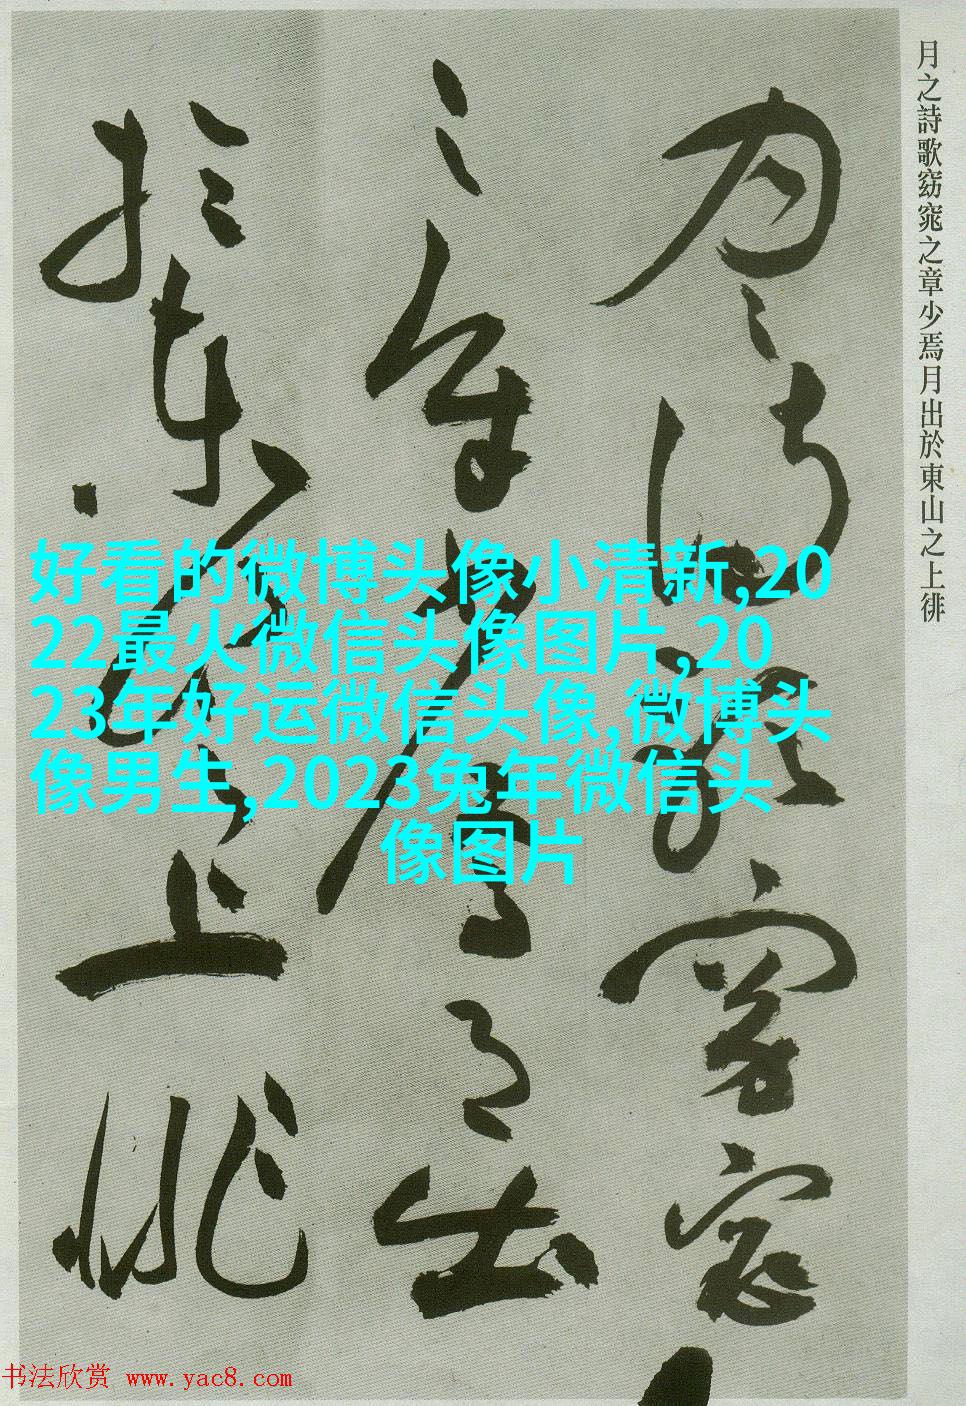 月之詩歌窈窕之章少焉月出於東山之上徘
月之詩歌窈窕
之章少焉月出
於東山之上徘
好看的微博头像小清新,20
22最火微信头像图片,20
23年好运微信头像,微博头
像男生,2023兔年微信头
像图片
书法欣赏 www.yac8.com